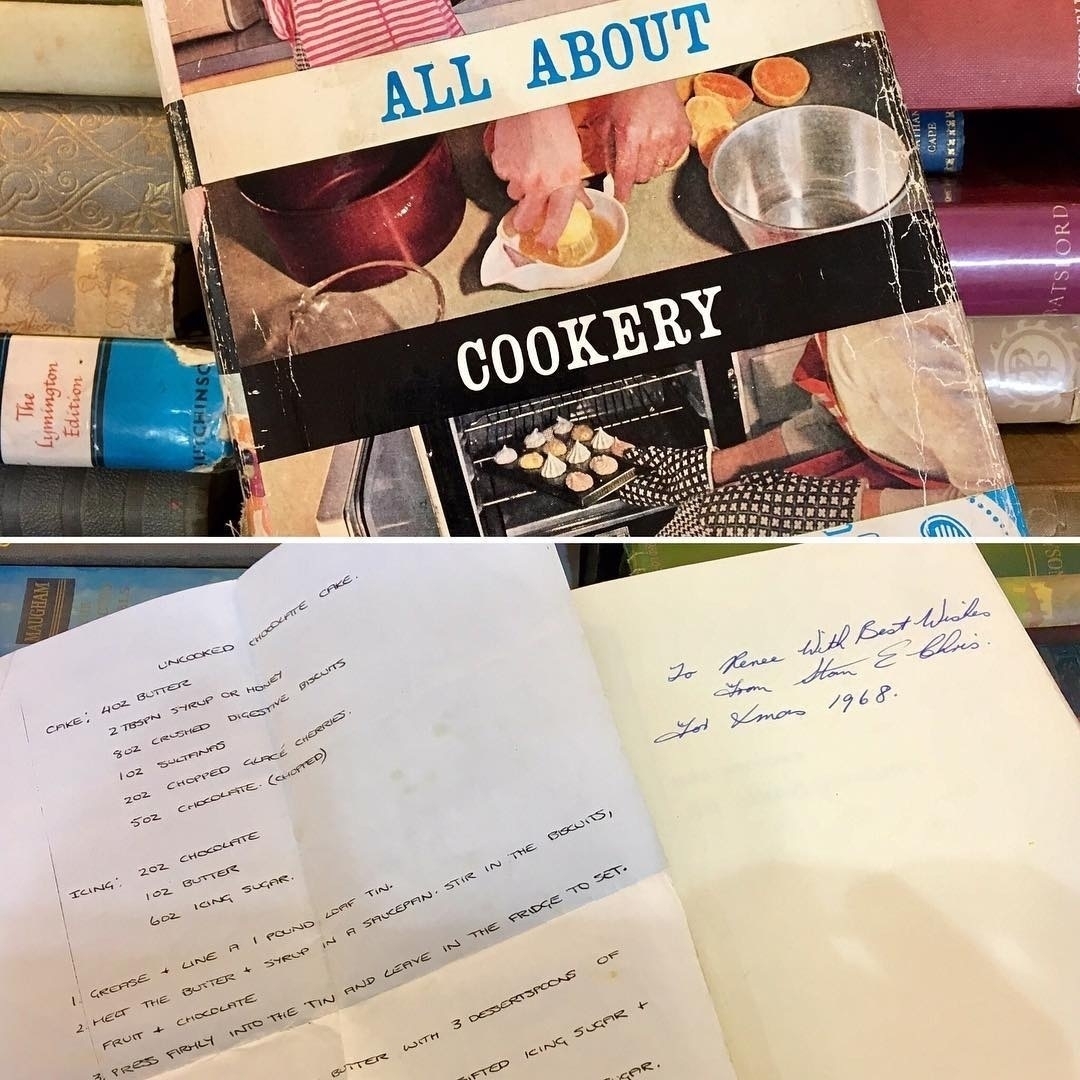 ALL ABOUT
COOKERY
The
Lymington
Edition.
HUTCHINSO
CAPE
BATSFORD
MAUGHAM
UNCOOKED CHOCOLATE CAKE.
CAKE: 4OZ BUTTER
2 TBSPN SYRUP OR HONEY
8OZ CRUSHED DIGESTIVE BISCUITS
1OZ SULTANAS
2OZ CHOPPED GLACÉ CHERRIES.
5OZ CHOCOLATE. (CHOPPED)
ICING: 2OZ CHOCOLATE
1OZ BUTTER
6OZ ICING SUGAR.
1. GREASE + LINE A 1 POUND LOAF TIN.
2. MELT THE BUTTER + SYRUP IN A SAUCEPAN. STIR IN THE BISCUITS,
FRUIT + CHOCOLATE
3. PRESS FIRMLY INTO THE TIN AND LEAVE IN THE FRIDGE TO SET.
BUTTER WITH 3 DESSERTSPOONS OF
SIFTED ICING SUGAR +
To Renee With Best Wishes
From Stan & Chris.
For Xmas 1968.